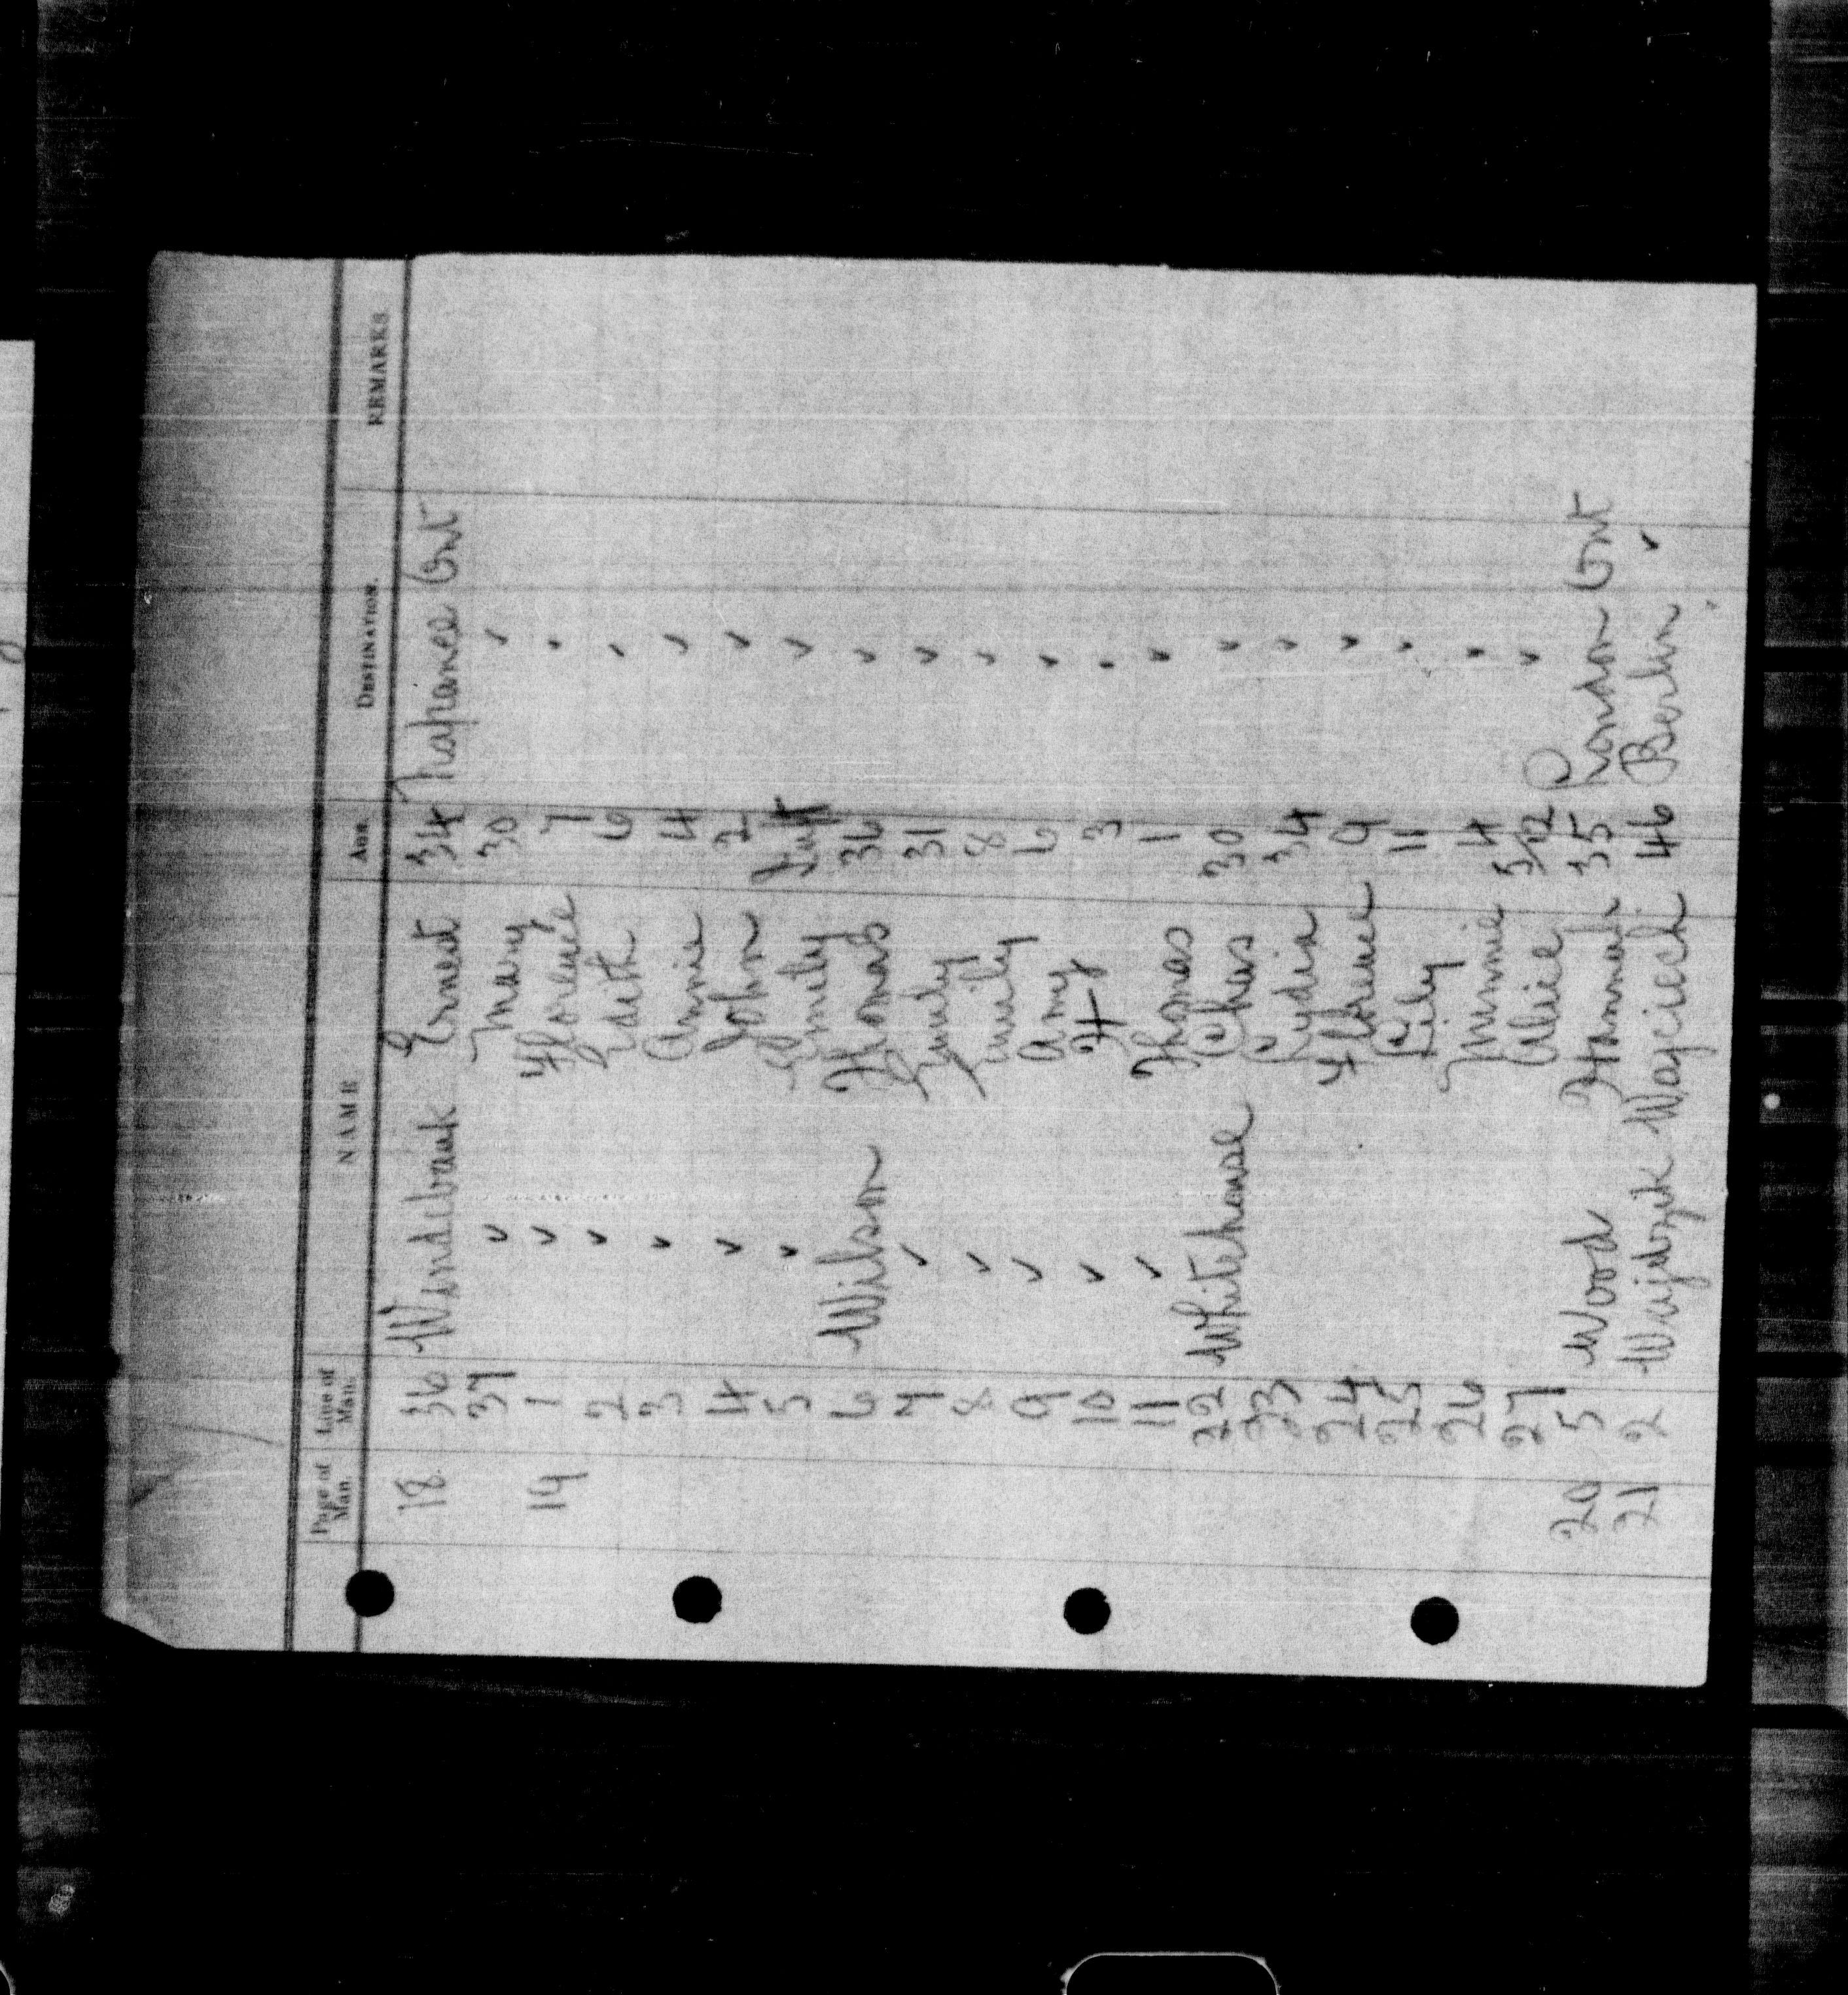 Page of Man. Line of Man. NAME AGE. DESTINATION. REMARKS
18 36 Windebank Ernest 34 Napanee Ont
37 ✓ Mary 30 ✓
19 1 ✓ Florence 7 ✓
2 ✓ Edith 6 ✓
3 ✓ Annie 4 ✓
4 ✓ John 2 ✓
5 ✓ Emily Inft ✓
6 Wilson Thomas 36 ✓
7 ✓ Emily 31 ✓
8 ✓ Emily 8 ✓
9 ✓ Amy 6 ✓
10 ✓ 3 ✓
11 ✓ Thomas 1 ✓
22 Whitehouse Chas 30 ✓
23 Lydia 34 ✓
24 Florence 9 ✓
25 Lily 11 ✓
26 Minnie 4 ✓
27 Alice 3/12 ✓
20 5 Wood Hannah 35 London Ont
21 2 Wojciech 46 Berlin ✓